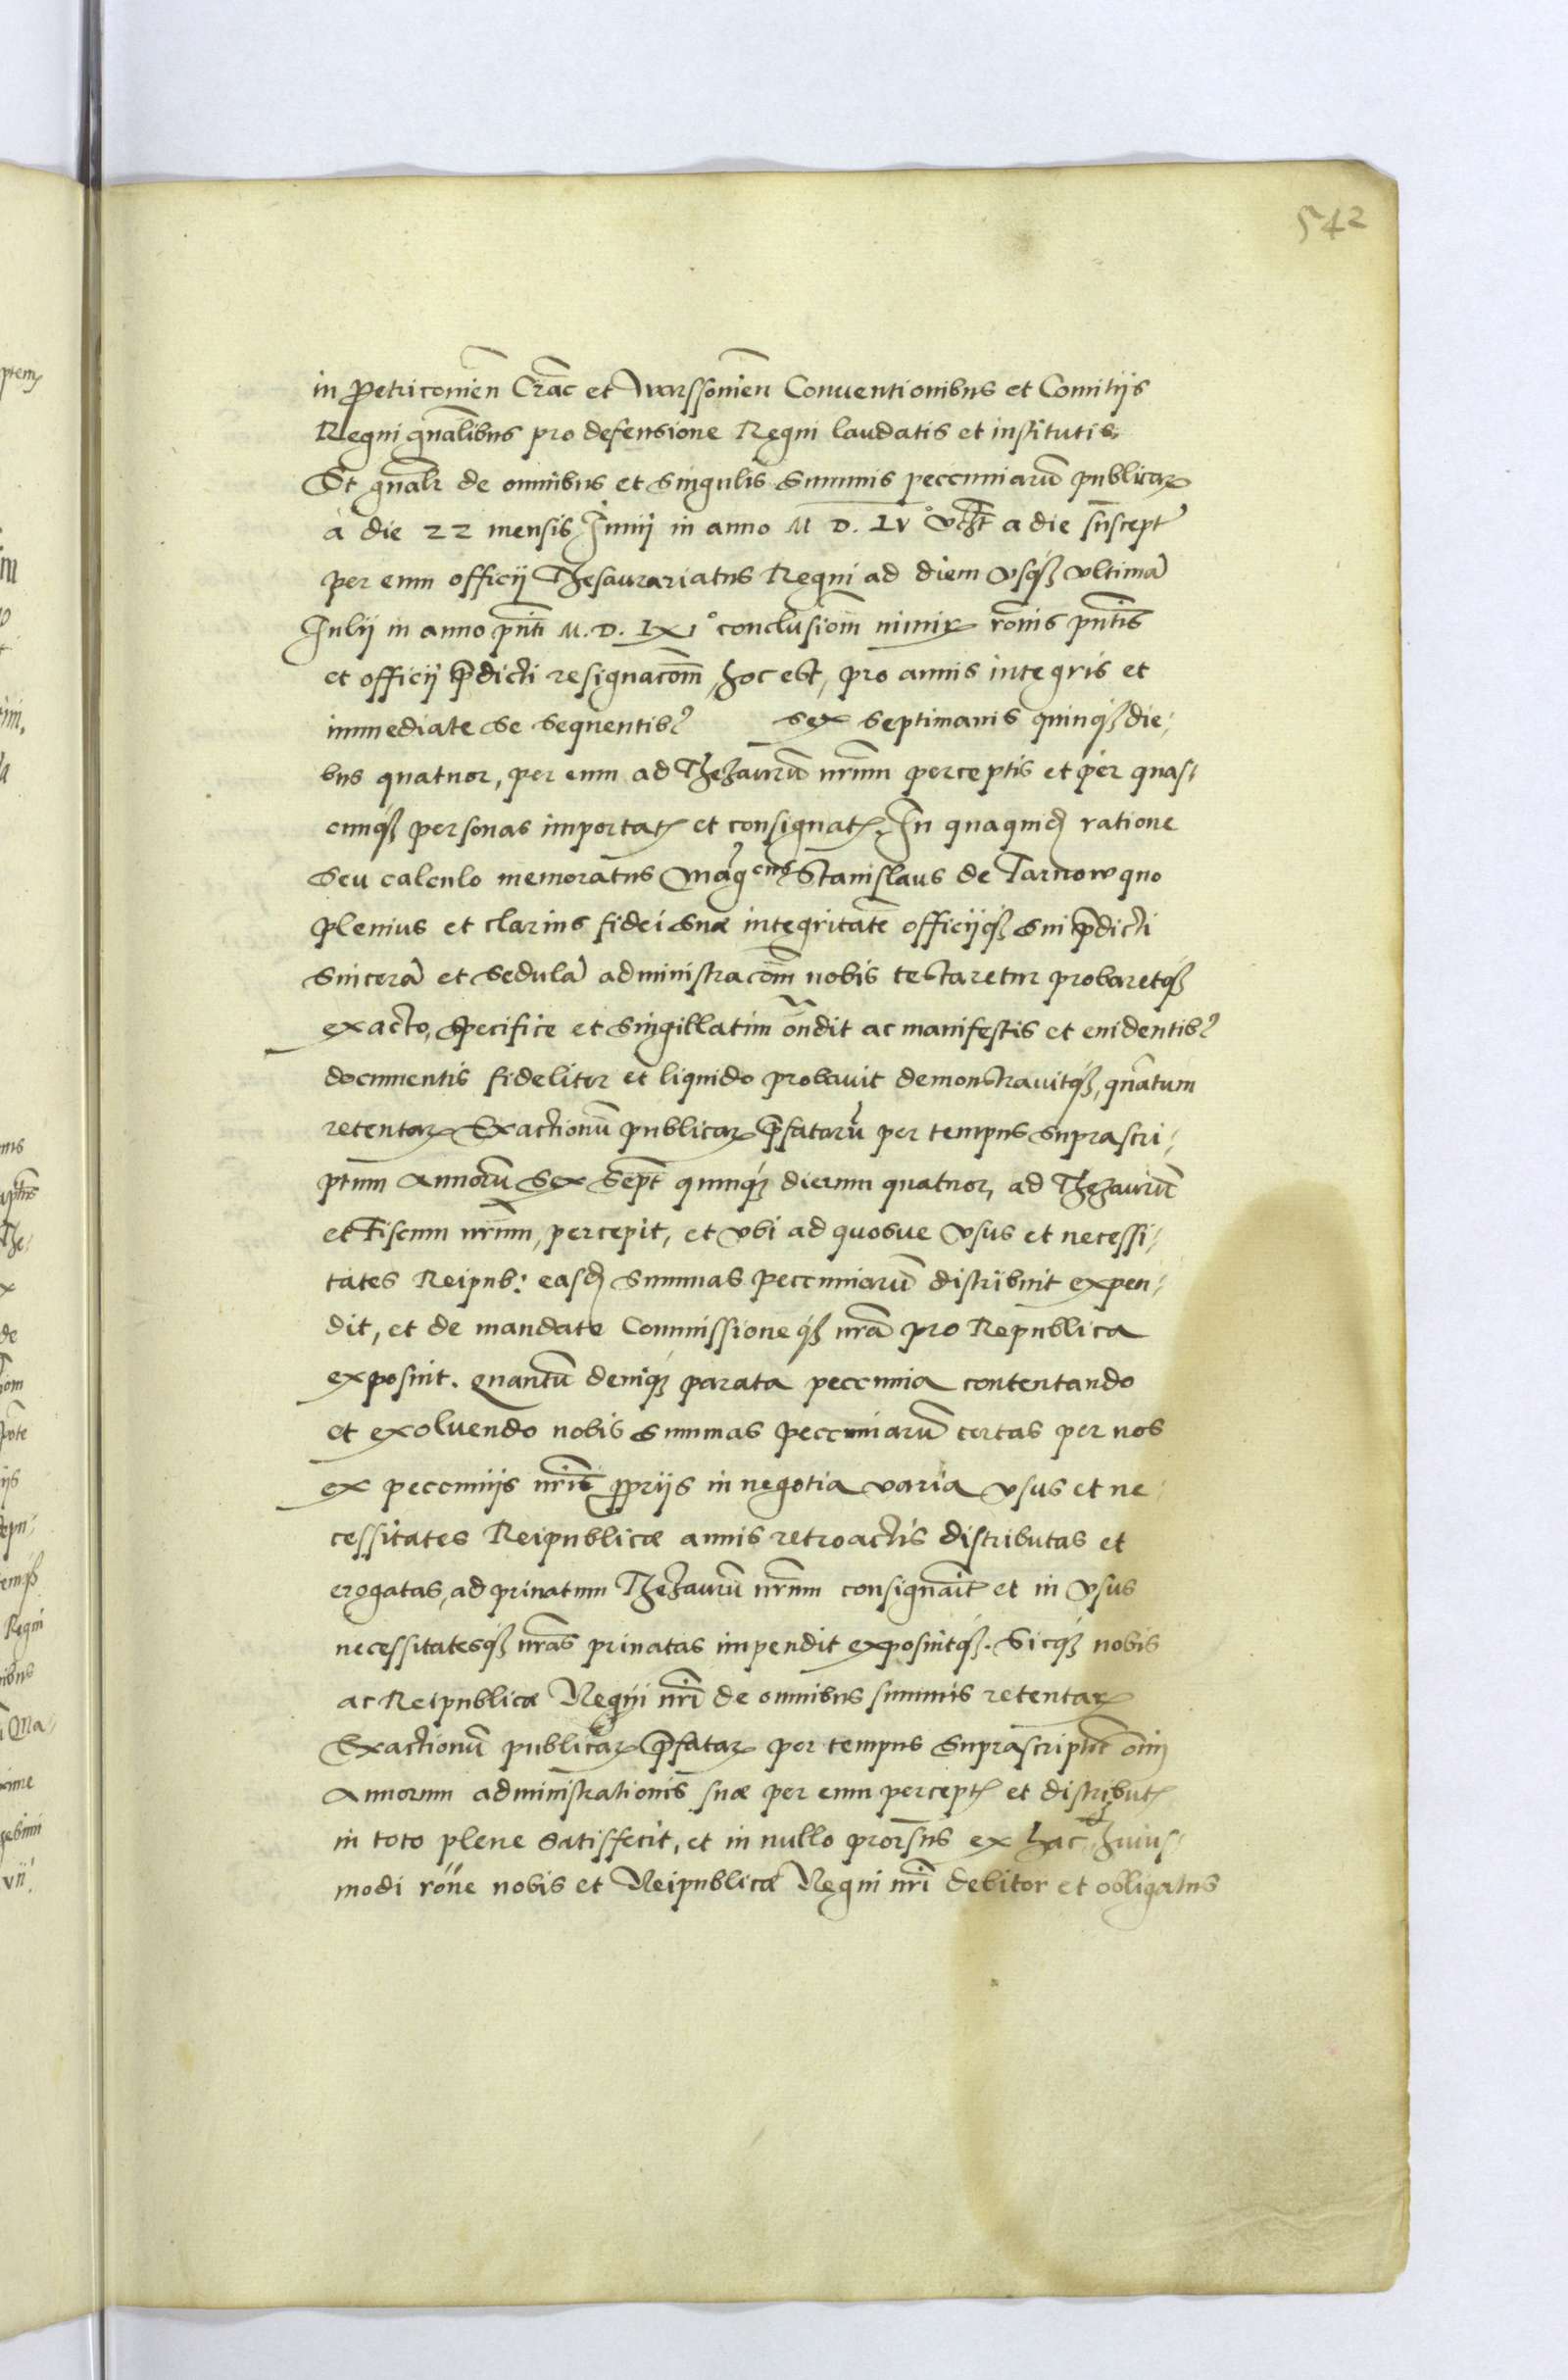 542
in Petriconien̄ Crac̄ et Warssonien̄ Conuentionibus et Comitijs
Regni gn̄alibus pro defensione Regni laudatis et institutis.
Et gn̄alr̄ de omnibus et singulis summis peccuniarū publicaꝝ
à die 22 mensis Junij in anno M D. LV° a die suscept̄
per eum officij Thesaurariatus Regni ad diem vsqꝫ vltimā
Julij in anno pn̄ti M. D. LXI° conclusiom̄ nimiꝝ ron̄is pn̄tis
et officij p̄dicti resignacom̄, hoc est, pro annis integris et
immediate se sequentibꝰ sex septimanis quinqꝫ die-
bus quatuor, per eum ad Thezaurū nr̄um perceptis et per quas-
cunqꝫ personas importatꝭ et consignatꝭ. In quaquidꝫ ratione
seu calculo memoratus Magcus Stanislaus de Tarnow quo
plenius et clarius fidei suæ integritatē officijqꝫ sui p̄dicti
sincerā et sedulā administracom̄ nobis testaretur probaretqꝫ
exacto, specifice et singillatim on̄dit ac manifestis et euidentibꝰ
documentis fideliter et liquido probauit demonstrauitqꝫ, qn̄atum
retentaꝝ Exactionū publicaꝝ p̄fatarū per tempus suprascri-
ptum annorū sex sept̄ quinqꝫ dierum quatuor, ad Thezaurū
et Fiscum nr̄um, percepit, et vbi ad quosue vsus et necessi-
tates Reipub: easdꝫ summas peccuniarū distribuit expen-
dit, et de mandato Commissioneqꝫ nr̄a pro Republica
exposuit. Quantū deniqꝫ parata peccunia contentando
et exoluendo nobis summas peccuniarū certas per nos
ex peccunijs nr̄is ꝓprijs in negotia varia vsus et ne-
cessitates Reipublicæ annis retroactis distributas et
erogatas, ad priuatum Thezaurū nr̄um consignauit et in vsus
necessitatesqꝫ nr̄as priuatas impendit exposuitqꝫ. Sicqꝫ nobis
ac Reipublicæ Regni nr̄i de omnibus summis retentaꝝ
Exactionū publicaꝝ p̄fataꝝ per tempus suprascriptū om̄
Annorum administrationis suæ per eum perceptꝭ et distributꝭ
in toto plene satisfecit, et in nullo prorsus ex hac huius-
modi ron̄e nobis et Reipublicæ Regni nr̄i debitor et obligatus